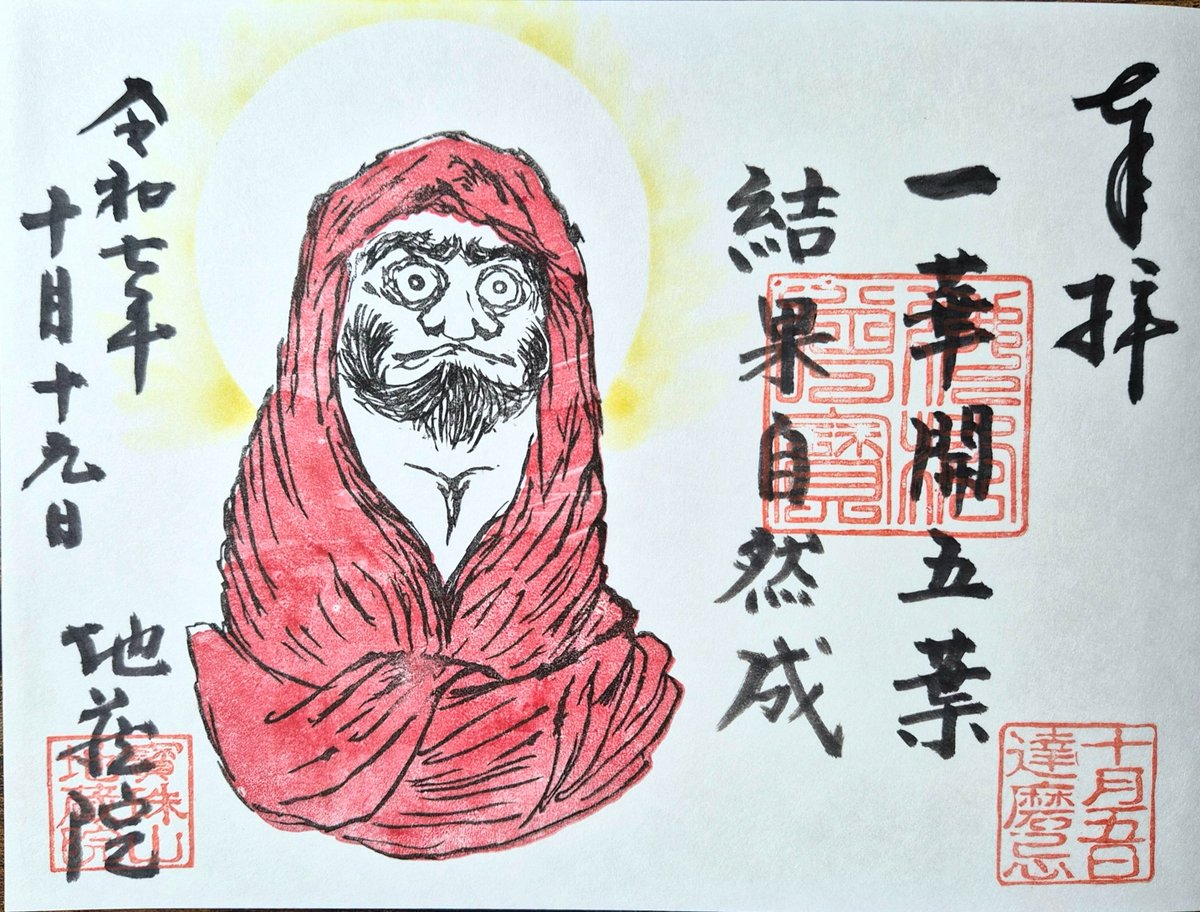 奉拝
一華開五葉
結果自然成
十月五日
達磨忌
令和七年
十月十九日
地蔵院
寳珠山
地蔵院